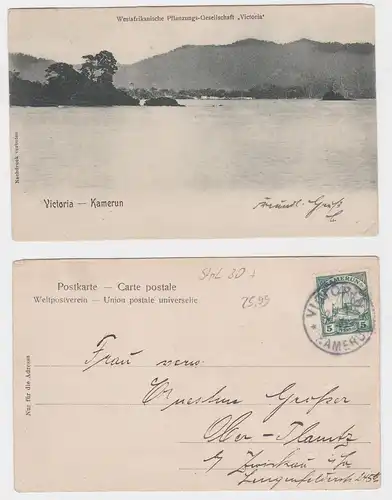 Westafrikanische Pflanzungs-Gesellschaft „Victoria“
Nachdruck verboten
Victoria — Kamerun
freundl. Gruß
Postkarte — Carte postale
Weltpostverein — Union postale universelle
Nur für die Adresse
75,99
KAMERUN
5 5
VICTORIA
KAMERUN
Frau verw.
Großer
Ober-Planitz
b/ Zwickau i/S.